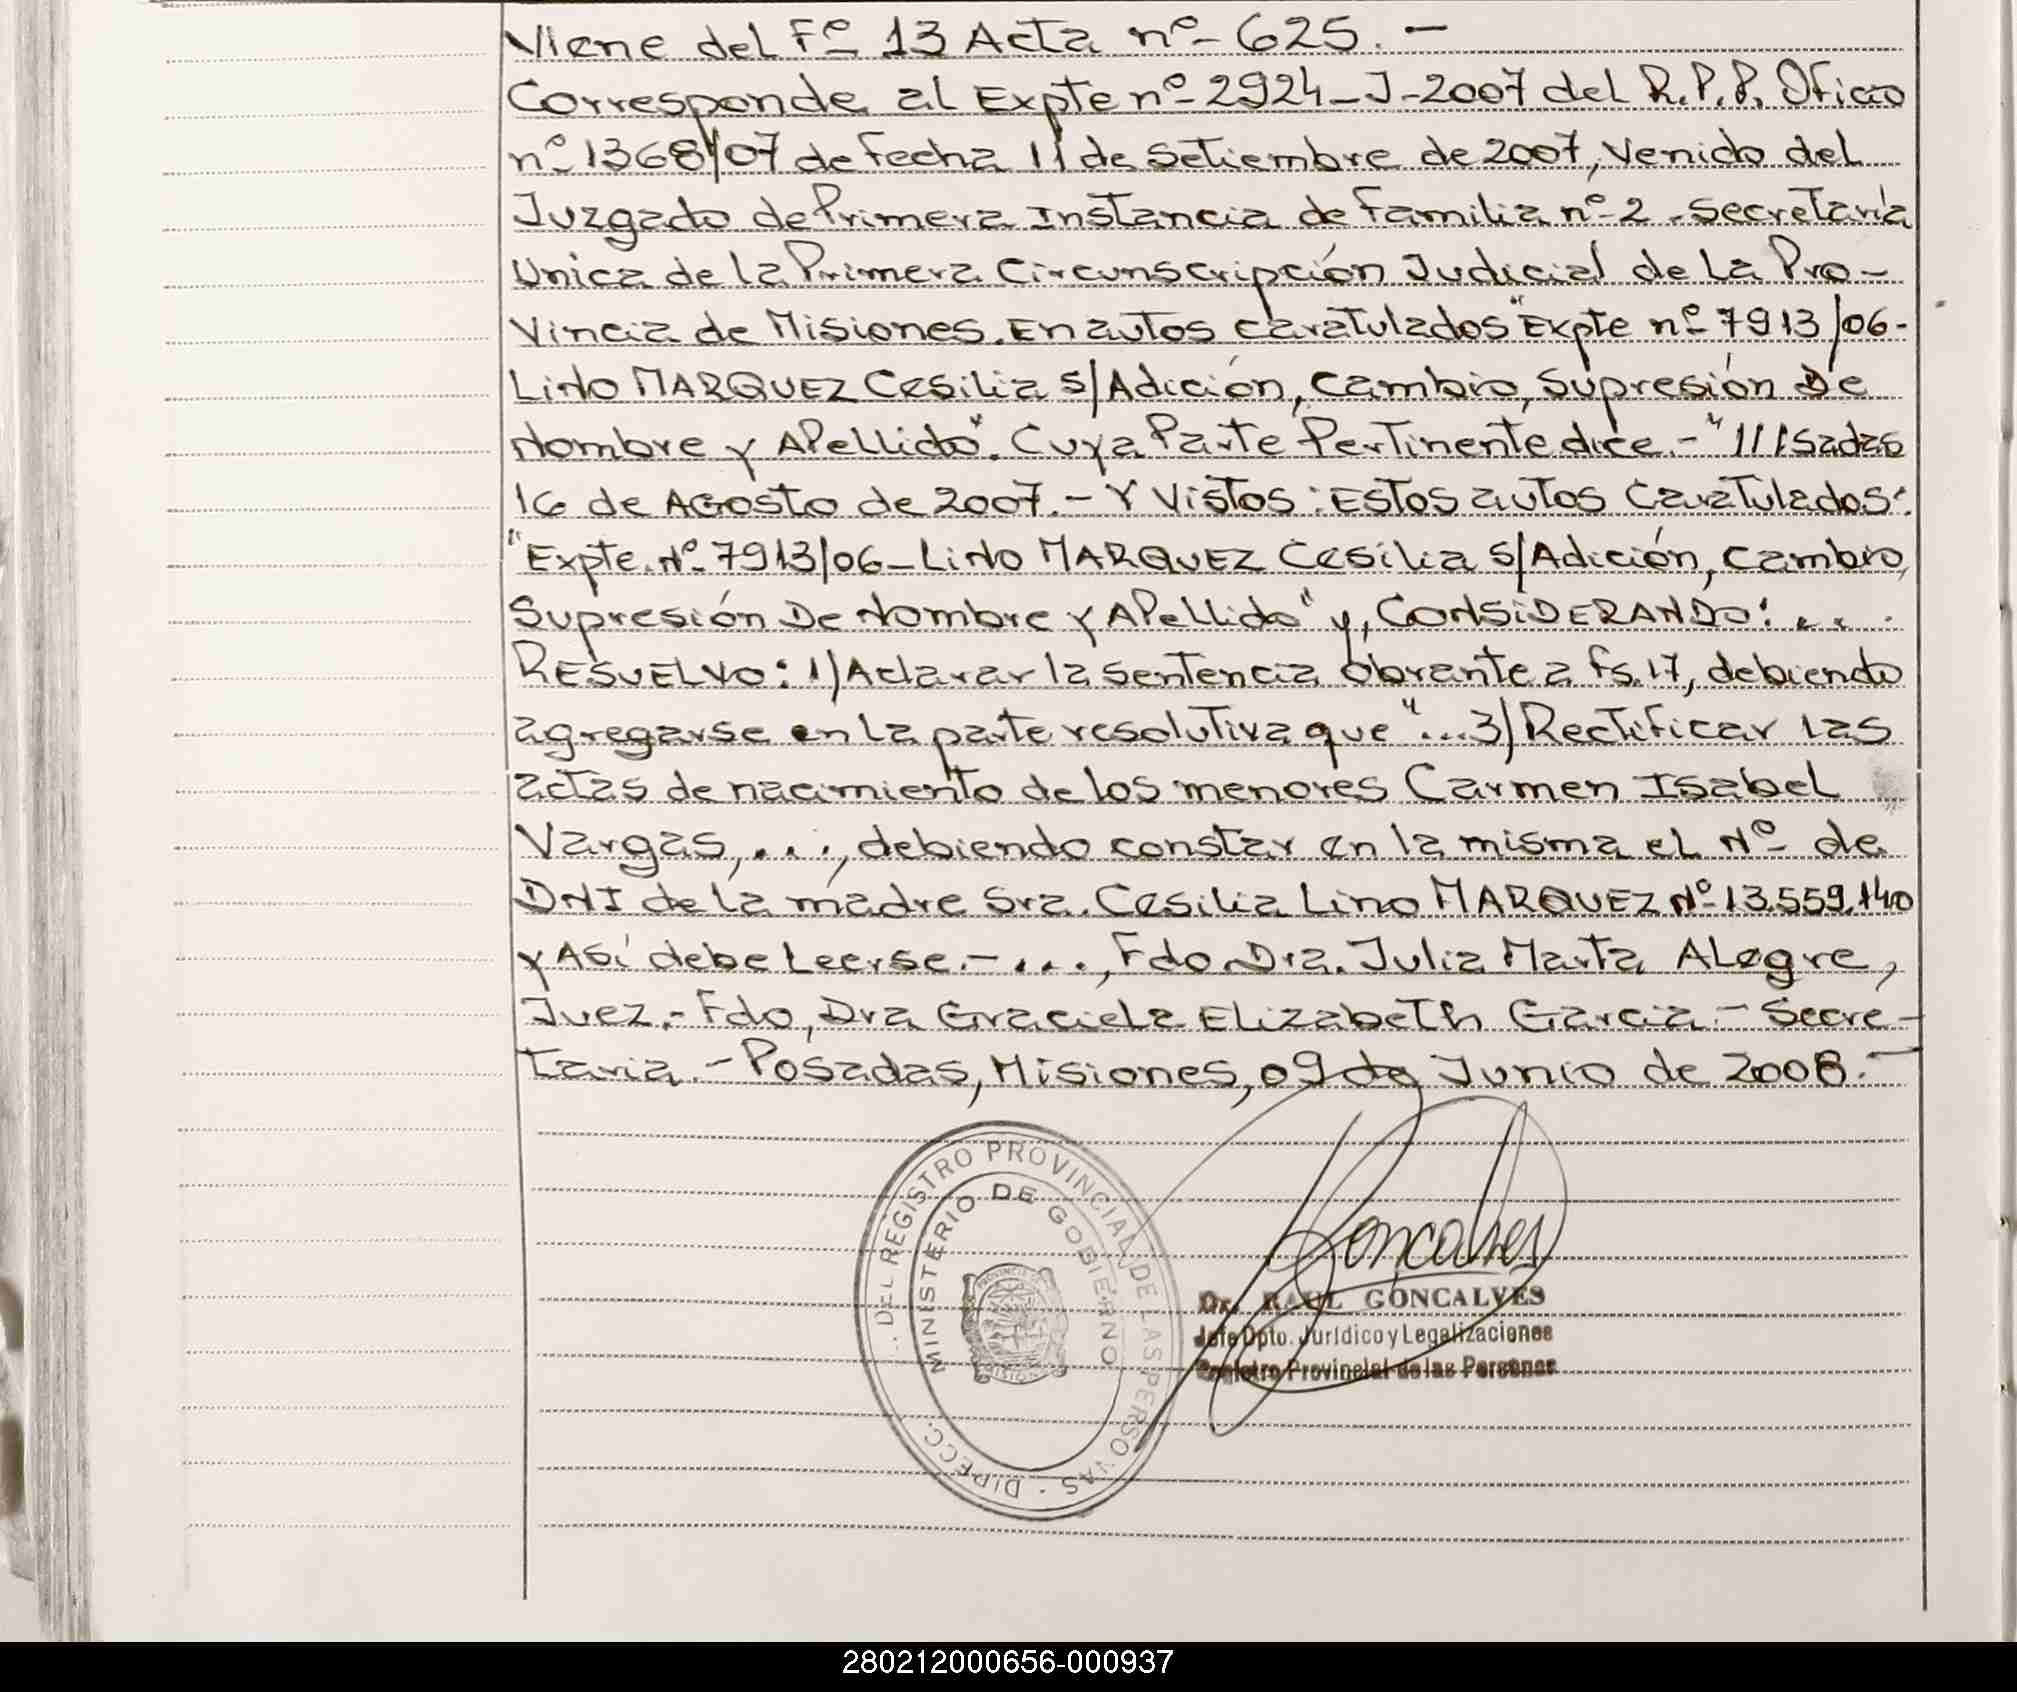 Viene del Fº 13 Acta nº 625.-
Corresponde al Expte nº 2924-J-2007 del R.P.P. Oficio
nº 1368/07 de fecha 11 de Setiembre de 2007, Venido del
Juzgado de Primera Instancia de Familia nº 2 - Secretaría
Unica de la Primera Circunscripción Judicial de La Pro-
Vincia de Misiones. En autos caratulados "Expte nº 7913/06-
Lino MARQUEZ Cesilia S/Adición, Cambio, Supresión De
Nombre y Apellido". Cuya Parte Pertinente dice.- "///sadas
16 de Agosto de 2007.- Y Vistos: Estos autos Caratulados:
"Expte. Nº 7913/06-Lino MARQUEZ Cesilia S/Adición, Cambio,
Supresión De Nombre y Apellido" y, CONSIDERANDO: ...
RESUELVO: 1)Aclarar la sentencia Obrante a fs.17, debiendo
agregarse en La parte resolutiva que "...3)Rectificar las
actas de nacimiento de los menores Carmen Isabel
Vargas,..., debiendo constar en la misma el Nº de
DNI de la madre Sra. Cesilia Lino MARQUEZ Nº 13.559.140
y Así debe Leerse.-..., Fdo Dra. Julia Marta Alegre,
Juez.- Fdo, Dra Graciela Elizabeth Garcia - Secre-
taria.- Posadas, Misiones, 09 de Junio de 2008.-
DIRECC. DEL REGISTRO PROVINCIAL DE LAS PERSONAS
MINISTERIO DE GOBIERNO
Goncalves
Dr. RAUL GONCALVES
Jefe Dpto. Jurídico y Legalizaciones
Registro Provincial de las Personas
280212000656-000937